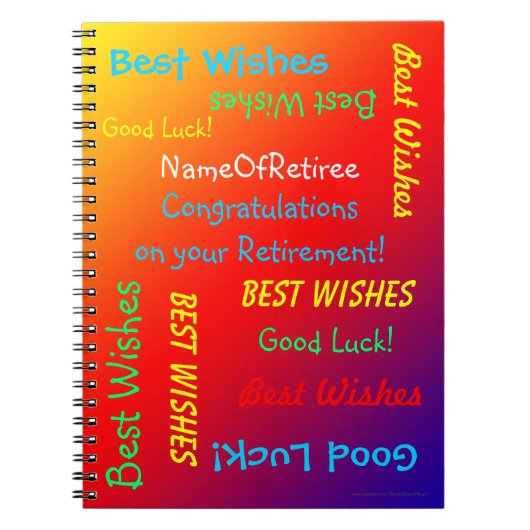 Best Wishes
Best Wishes
Best Wishes
Good Luck!
NameOfRetiree
Congratulations
on your Retirement!
BEST WISHES
Best Wishes
BEST WISHES
Good Luck!
Best Wishes
Good Luck!